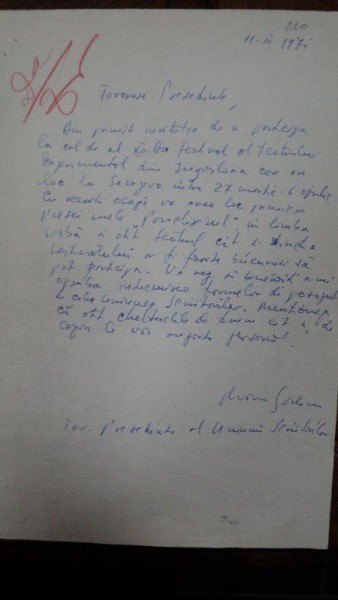 220
11-III 1971
Da
Tovarase Presedinte,
Am primit invitatia de a participa
la cel de al XII-lea Festival al Teatrului
Experimental din Iugoslavia care are
loc la Sarajevo intre 27 martie - 6 aprilie
Cu aceasta ocazie va avea loc premiera
piesei mele in limba
sârbă si atât teatrul cât si
festivalului ar fi foarte bucurosi să
pot participa. Vă rog să binevoiti a-mi
aproba formelor de pasaport
de către Uniunea Scriitorilor. Mentionez
că atât cheltuielile de drum cât si de
le voi suporta personal.
Tov. Presedinte al Uniunii Scriitorilor